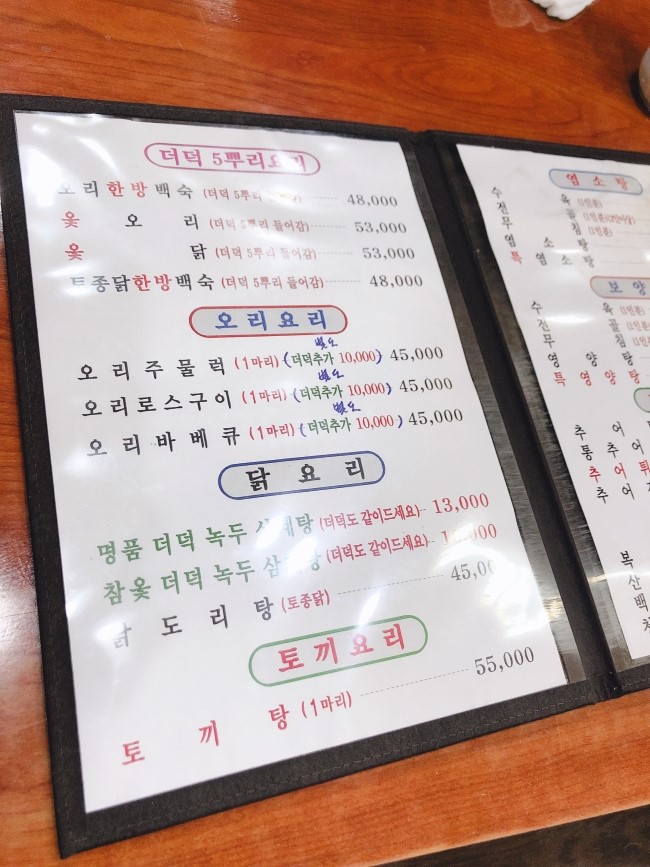 더덕 5뿌리요리
오리한방백숙 (더덕 5뿌리 48,000
옻 오 리 (더덕 5뿌리 들어감) 53,000
옻 닭 (더덕 5뿌리 들어감) 53,000
토종닭한방백숙 (더덕 5뿌리 들어감) 48,000
오리요리
별도
오리주물럭 (1마리) (더덕추가 10,000) 45,000
별도
오리로스구이 (1마리) (더덕추가 10,000) 45,000
별도
오리바베큐 (1마리) (더덕추가 10,000) 45,000
닭요리
명품 더덕 녹두 삼계탕 (더덕도 같이드세요) 13,000
참옻 더덕 녹두 삼계탕 (더덕도 같이드세요)
닭도리탕 (토종닭) 45,000
토끼요리
토 끼 탕 (1마리) 55,000
염소탕
수 육 (1인분)
전 골 (1인분)
무 침 (1인분)
염 소 탕
특 염 소 탕
보 양
수 육 (1인분)
전 골 (1인분)
무 침 (1인분)
영 양 탕
특 영 양 탕
추 어
통 추 어
추 어 튀
추 어
복
산
백